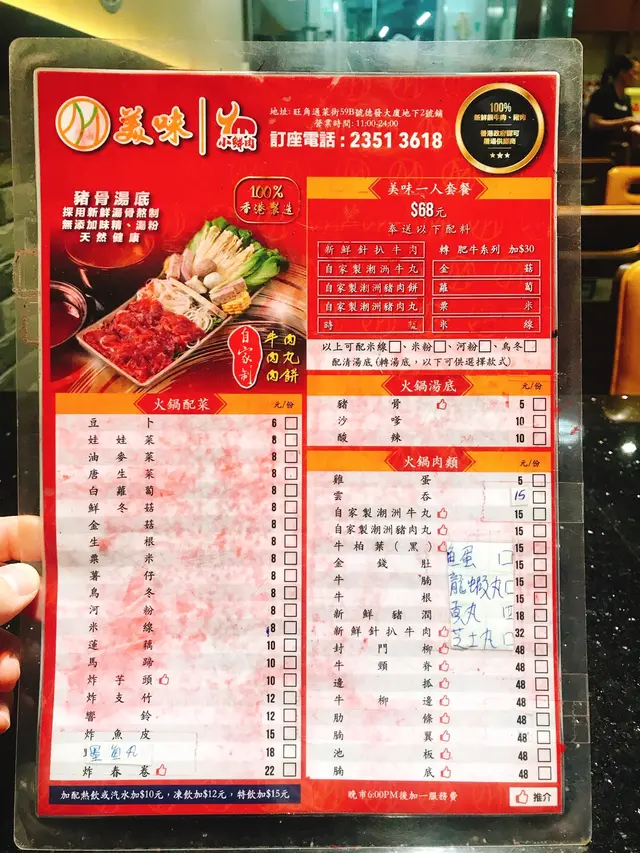 美味
小鮮肉
地址: 旺角通菜街59B號德發大廈地下2號鋪
營業時間: 11:00-24:00
訂座電話 : 2351 3618
100%
新鮮牛肉、豬肉
香港政府認可
供應商
豬骨湯底
採用新鮮湯骨熬制
無添加味精、湯粉
天然健康
100%
香港製造
自家制
牛肉
肉丸
肉餅
美味一人套餐
$68元
奉送以下配料
新鮮針扒牛肉 轉 肥牛系列 加$30
自家製潮洲牛丸 金菇
自家製潮洲豬肉餅 蘿蔔
自家製潮洲豬肉丸 粟米
時 米線
以上可配米線□、米粉□、河粉□、烏冬□
配清湯底(轉湯底，以下可供選擇款式)
火鍋湯底 元/份
豬骨 5
沙嗲 10
酸辣 10
火鍋肉類 元/份
雞蛋 5
雲吞 15
自家製潮洲牛丸 15
自家製潮洲豬肉丸 15
牛柏葉(黑) 15
金錢肚 15
牛腩 15
牛根 15
新鮮豬潤 18
新鮮針扒牛肉 32
封門柳 48
牛頸脊 48
邊拡 48
牛柳邊 48
肋條 48
胸翼 48
池板 48
胸底 48
魚蛋
龍蝦丸
貢丸
芝士丸
火鍋配菜 元/份
豆卜 6
娃娃菜 8
油麥菜 8
唐生菜 8
白蘿蔔 8
鮮冬菇 8
金菇 8
生根 8
粟米 8
薯仔 8
烏冬 8
河粉 8
米線 8
蓮藕 10
馬蹄 10
炸芋頭 10
炸支竹 12
響鈴 12
炸魚皮 15
墨魚丸 18
炸春卷 22
加配熱飲或汽水加$10元，凍飲加$12元，特飲加$15元
晚市6:00PM後加一服務費
推介